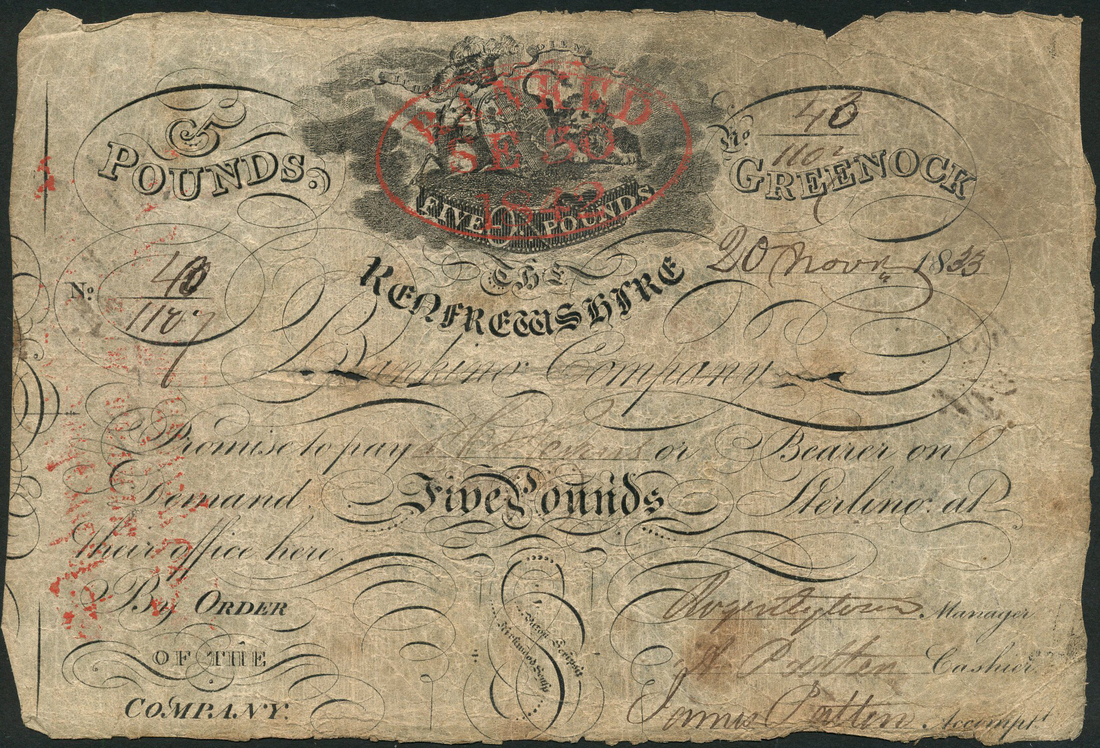 5
POUNDS.
RANKED
SE 30
1842
FIVE 5 POUNDS
No. 40
1107
GREENOCK
No. 40
1107
20 Novr. 1833
THE
RENFREWSHIRE
Banking Company
Promise to pay or Bearer on
Demand Five Pounds Sterling at
their office here.
By ORDER
OF THE
COMPANY.
Roger Aytoun Manager
Patten Cashier
James Patten Accompt.
Kirkwood Sculp